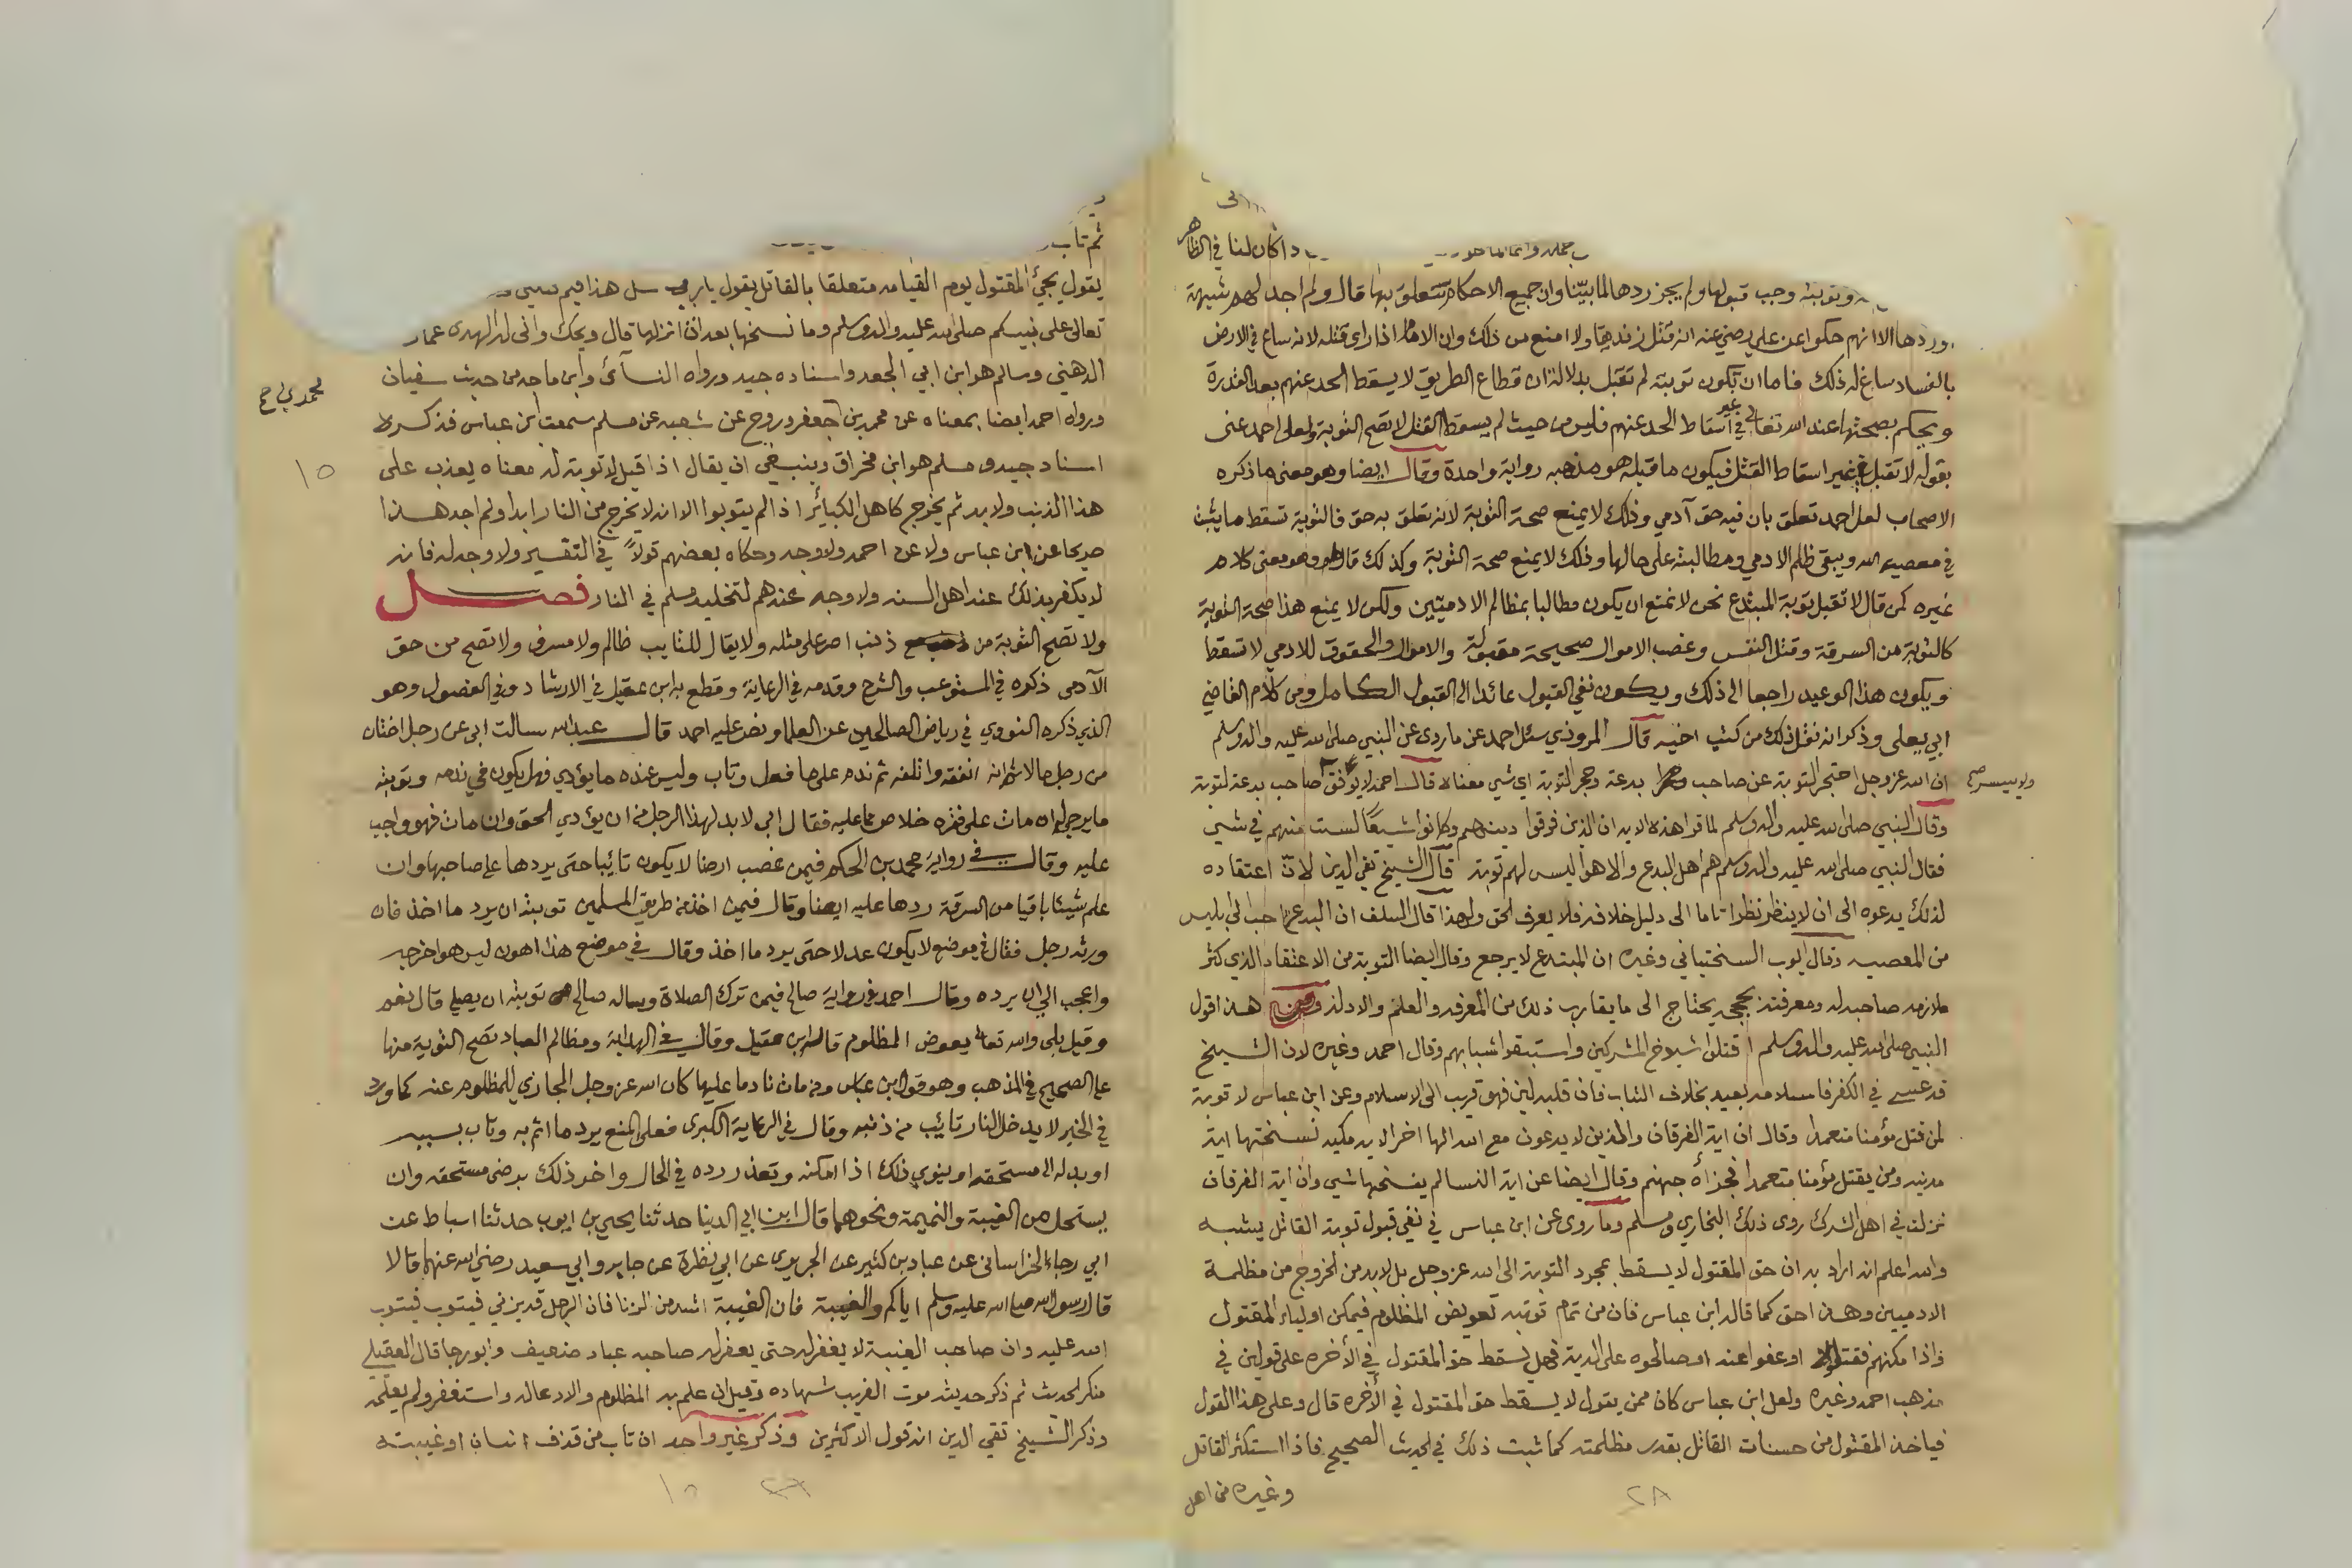 داكان لنا في الظاهر
وتوبته وجب قبولها ولم يجز ردها لما بيّنا وان جميع الاحكام تتعلق بها قال ولم اجد لهم شبهة
وردها الا انهم حكوا عن علي رضي عنه انه قتل زنديقا ولا امنع من ذلك وان الامام اذا راى قتله لانه ساع في الارض
بالفساد ساغ له ذلك فاما ان تكون توبته لم تقبل بدلالة ان قطاع الطريق لا يسقط الحد عنهم بعد القدرة
ويحكم بصحتها عند الله تعالى في غير اسقاط الحد عنهم فليس من حيث لم يسقط القتل لا تصح التوبة ولعل احمد عنى
بقوله لا تقبل في غير اسقاط القتل فيكون ما قبله هو مذهبه رواية واحدة وقال ايضا وهو معنى ما ذكره
الاصحاب لعل احمد تعلق بان فيه حق آدمي وذلك لا يمنع صحة التوبة لانه تعلق به حق فالتوبة تسقط ما يثبت
في معصية الله ويبقى ظلم الادمي ومطالبته على حالها وذلك لا يمنع صحة التوبة وكذلك قال وهو معنى كلام
غيره كمن قال لا تقبل توبة المبتدع نحن لا نمنع ان يكون مطالبا بمظالم الادميين ولكن لا يمنع هذا صحة التوبة
كالتوبة من السرقة وقتل النفس وغصب الاموال صحيحة مقبولة والاموال والحقوق للادمي لا تسقط
ويكون هذا الوعيد راجعا الى ذلك ويكون نفي القبول عائدا الى القبول الكامل ومن كلام القاضي
ابي يعلى وذكر انه نقل ذلك من كتب اخيه قال المروذي سئل احمد عن ما روى عن النبي صلى الله عليه واله وسلم
ان الله عز وجل احتجر التوبة عن صاحب بدعة وحجر التوبة اي شي معناه قال احمد لا يوفق صاحب بدعة لتوبة
ولا ييسر صح
وقال النبي صلى الله عليه واله وسلم لما قرا هذه الاية ان الذين فرقوا دينهم وكانوا شيعًا لست منهم في شي
فقال النبي صلى الله عليه واله وسلم هم اهل البدع والاهوا ليس لهم توبة قال الشيخ تقي الدين لان اعتقاده
لذلك يدعوه الى ان لا ينظر نظرا تاما الى دليل خلافه فلا يعرف الحق ولهذا قال السلف ان البدعة احب الى ابليس
من المعصية وقال ايوب السختياني وغيره ان المبتدع لا يرجع وقال ايضا التوبة من الاعتقاد الذي كثر
ملازمة صاحبه له ومعرفته بحججه يحتاج الى ما يقارب ذلك من المعرفه والعلم والادلة ومن هذا قول
النبي صلى الله عليه واله وسلم اقتلوا شيوخ المشركين واستبقوا شبابهم وقال احمد وغيره لان الشيخ
قد عسى في الكفر فاسلامه بعيد بخلاف الشاب فان قلبه لين فهو قريب الى الاسلام وعن ابن عباس لا توبة
لمن قتل مؤمنا متعمدا وقال ان اية الفرقان والذين لا يدعون مع الله الها اخر الاية مكية نسختها اية
مدنية ومن يقتل مؤمنا متعمدا فجزاه جهنم وقال ايضا عن اية النسا لم ينسخها شي وان اية الفرقان
نزلت في اهل الشرك روى ذلك البخاري ومسلم وما روى عن ابن عباس في نفي قبول توبة القاتل يشبه
والله اعلم انه اراد به ان حق المقتول لا يسقط بمجرد التوبة الى الله عز وجل بل لابد من الخروج من مظلمة
الادميين وهذا حق كما قاله ابن عباس فان من تمام توبته تعويض المظلوم فيمكن اولياء المقتول
فاذا مكنهم فقتلوا او عفوا عنه او صالحوه على الدية فهل يسقط حق المقتول في الاخره على قولين في
مذهب احمد وغيره ولعل ابن عباس كان ممن يقول لا يسقط حق المقتول في الاخره قال وعلى هذا القول
فياخذ المقتول من حسنات القاتل بقدر مظلمته كما ثبت ذلك في الحديث الصحيح فاذا استكثر القاتل
وغيره من اهل
٢٨
ثم تاب
يقول يجئ المقتول يوم القيامه متعلقا بالقاتل يقول يا رب سل هذا فيم
تعالى على نبيكم صلى الله عليه واله وسلم وما نسخها بعد ان انزلها قال ويحك وانى له الهدى عمار
الدهني وسالم هو ابن ابي الجعد واسناده جيد ورواه النسائي وابن ماجه من حديث سفيان
ورواه احمد ايضا بمعناه عن محمد بن جعفر وروح عن شعبه عن مسلم سمعت ابن عباس فذكره
اسناد جيد ومسلم هو ابن مخراق وينبغي ان يقال اذا قيل لا توبة له معناه يعذب على
١٥
هذا الذنب ولابد ثم يخرج كاهل الكبائر اذا لم يتوبوا الا انه لا يخرج من النار ابدا ولم اجد هذا
صريحا عن ابن عباس ولا عن احمد ولا وجه وحكاه بعضهم قولاً في التفسير ولا وجه له فانه
لا يكفر بذلك عند اهل السنه ولا وجه عندهم لتخليد مسلم في النار فصل
ولا تصح التوبة من ذنب اصر على مثله ولا يقال للتايب ظالم ولا مسرف ولا تصح من حق
الآدمي ذكره في المستوعب والشرح وقدمه في الرعاية وقطع به ابن عقيل في الارشاد وفي الفصول وهو
الذي ذكره النووي في رياض الصالحين عن العلما ونص عليه احمد قال عبدالله سالت ابي عن رجل اختان
من رجل مالا ثم انه انفقه واتلفه ثم ندم على ما فعل وتاب وليس عنده ما يؤدي فهل يكون في ندمه وتوبته
ما يرجى له ان مات على فقره خلاص مما عليه فقال ابي لابد لهذا الرجل من ان يؤدي الحق وان مات فهو واجب
عليه وقال في رواية محمد بن الحكم فيمن غصب ارضا لا يكون تائبا حتى يردها على صاحبها وان
علم شيئا باقيا من السرقة ردها عليه ايضا وقال فيمن اخذ من طريق المسلمين توبته ان يرد ما اخذ فان
ورثه رجل فقال في موضع لا يكون عدلا حتى يرد ما اخذ وقال في موضع هذا اهون ليس هو اخرجه
واعجب الي ان يرده وقال احمد في رواية صالح فيمن ترك الصلاة وساله صالح توبته ان يصلي قال نعم
وقيل بلى والله تعالى يعوض المظلوم قاله ابن عقيل وقال في الهداية ومظالم العباد تصح التوبة منها
على الصحيح في المذهب وهو قول ابن عباس ومن مات نادما عليها كان الله عز وجل المجازي للمظلوم عنه كما ورد
في الخبر لا يدخل النار تائب من ذنبه وقال في الرعاية الكبرى فعلى المنع يرد ما اثم به وتاب بسببه
او بدله الى مستحقه او ينوي ذلك اذا امكنه وتعذر رده في الحال واخر ذلك برضى مستحقه وان
يستحل من الغيبة والنميمة ونحوهما قال ابن ابي الدينا حدثنا يحيى بن ايوب حدثنا اسباط عن
ابي رجاء الخراساني عن عباد بن كثير عن الجريري عن ابي نظرة عن جابر وابي سعيد رضي الله عنهما قالا
قال رسول الله صلى الله عليه وسلم اياكم والغيبة فان الغيبة اشد من الزنا فان الرجل قد يزني فيتوب فيتوب
الله عليه وان صاحب الغيبة لا يغفر له حتى يغفر له صاحبه عباد ضعيف وابو رجا قال العقيلي
منكر الحديث ثم ذكر حديثه موت الغريب شهاده وقيل ان علم به المظلوم والا دعا له واستغفر ولم يعلمه
وذكر الشيخ تقي الدين انه قول الاكثرين وذكر غير واحد ان تاب من قذف انسان او غيبته
١٥ ٢٨